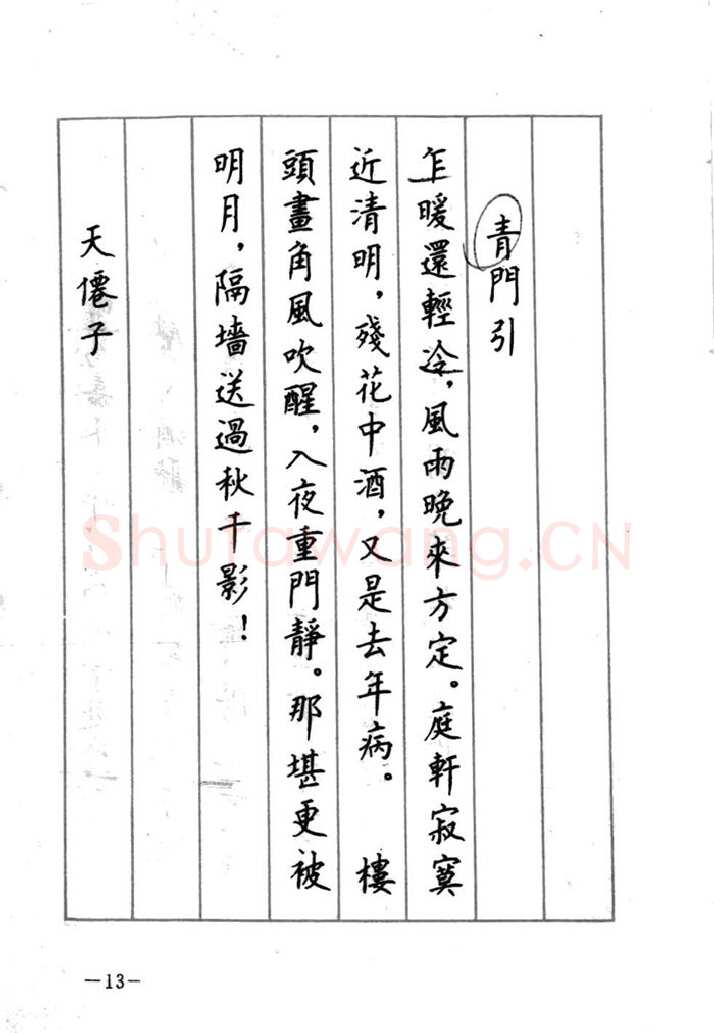 青門引
乍暖還輕冷，風雨晚來方定。庭軒寂寞
近清明，殘花中酒，又是去年病。 樓
頭畫角風吹醒，入夜重門靜。那堪更被
明月，隔墻送過秋千影！
天僊子
Shufawang.CN
—13—